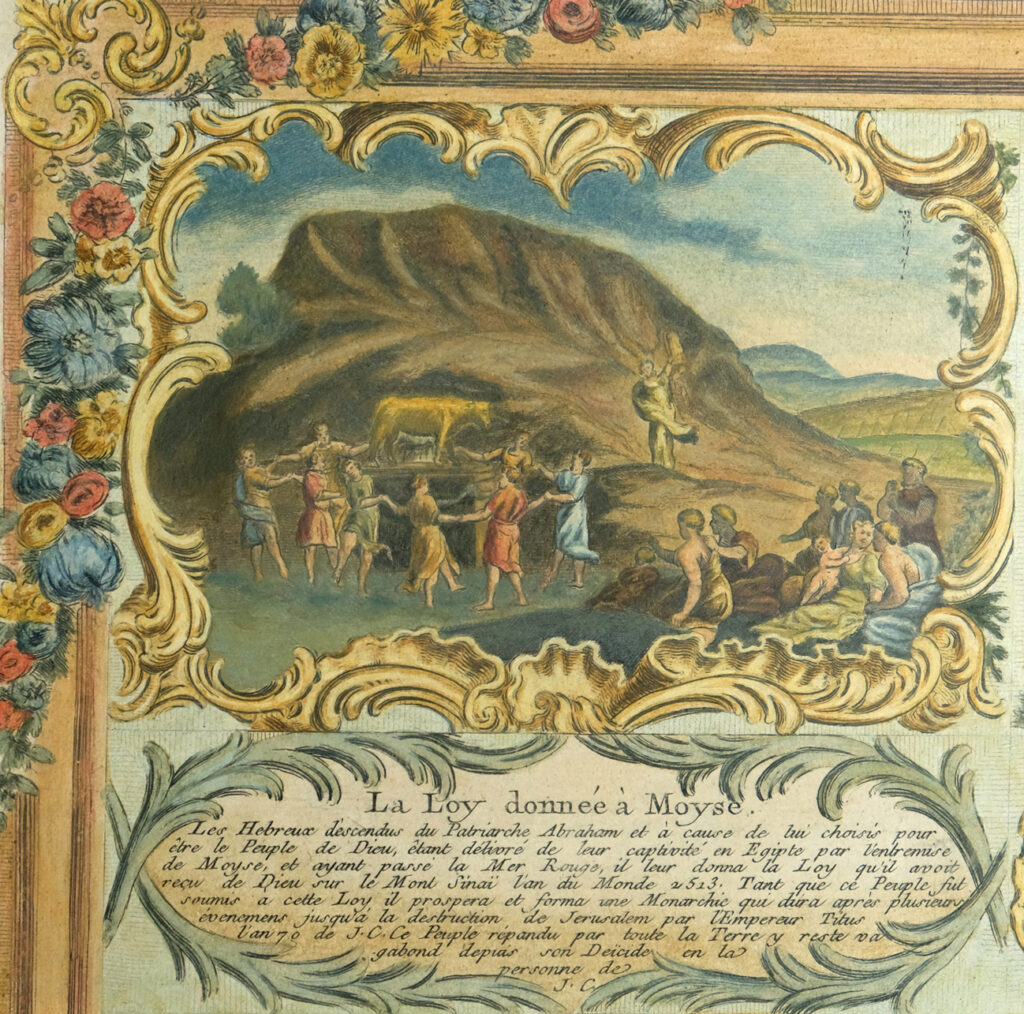 La Loy donneé à Moyse.
Les Hebreux descendus du Patriarche Abraham et à cause de lui choisis pour
être le Peuple de Dieu, étant délivré de leur captivité en Egipte par l'entremise
de Moyse, et ayant passé la Mer Rouge, il leur donna la Loy qu'il avoit
reçu de Dieu sur le Mont Sinaï l'an du Monde 2513. Tant que ce Peuple fut
soumis a cette Loy il prospera et forma une Monarchie qui dura après plusieurs
évenemens jusqu'à la destruction de Jerusalem par l'Empereur Titus
l'an 70 de J.C. Ce Peuple répandu par toute la Terre y reste va
gabond depius son Deïcide en la
personne de
J.C.